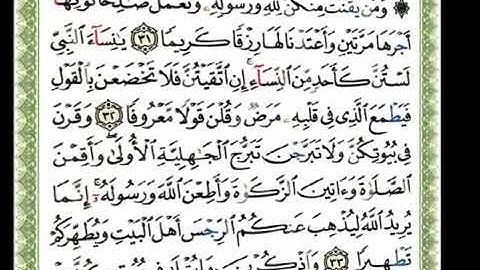 ۞ وَمَن يَقْنُتْ مِنكُنَّ لِلَّهِ وَرَسُولِهِۦ وَتَعْمَلْ صَٰلِحًا نُّؤْتِهَآ
أَجْرَهَا مَرَّتَيْنِ وَأَعْتَدْنَا لَهَا رِزْقًا كَرِيمًا ٣١ يَٰنِسَآءَ ٱلنَّبِىِّ
لَسْتُنَّ كَأَحَدٍ مِّنَ ٱلنِّسَآءِ إِنِ ٱتَّقَيْتُنَّ فَلَا تَخْضَعْنَ بِٱلْقَوْلِ
فَيَطْمَعَ ٱلَّذِى فِى قَلْبِهِۦ مَرَضٌ وَقُلْنَ قَوْلًا مَّعْرُوفًا ٣٢ وَقَرْنَ
فِى بُيُوتِكُنَّ وَلَا تَبَرَّجْنَ تَبَرُّجَ ٱلْجَٰهِلِيَّةِ ٱلْأُولَىٰ وَأَقِمْنَ
ٱلصَّلَوٰةَ وَءَاتِينَ ٱلزَّكَوٰةَ وَأَطِعْنَ ٱللَّهَ وَرَسُولَهُۥٓ إِنَّمَا
يُرِيدُ ٱللَّهُ لِيُذْهِبَ عَنكُمُ ٱلرِّجْسَ أَهْلَ ٱلْبَيْتِ وَيُطَهِّرَكُمْ
تَطْهِيرًا ٣٣ وَٱذْكُرْنَ